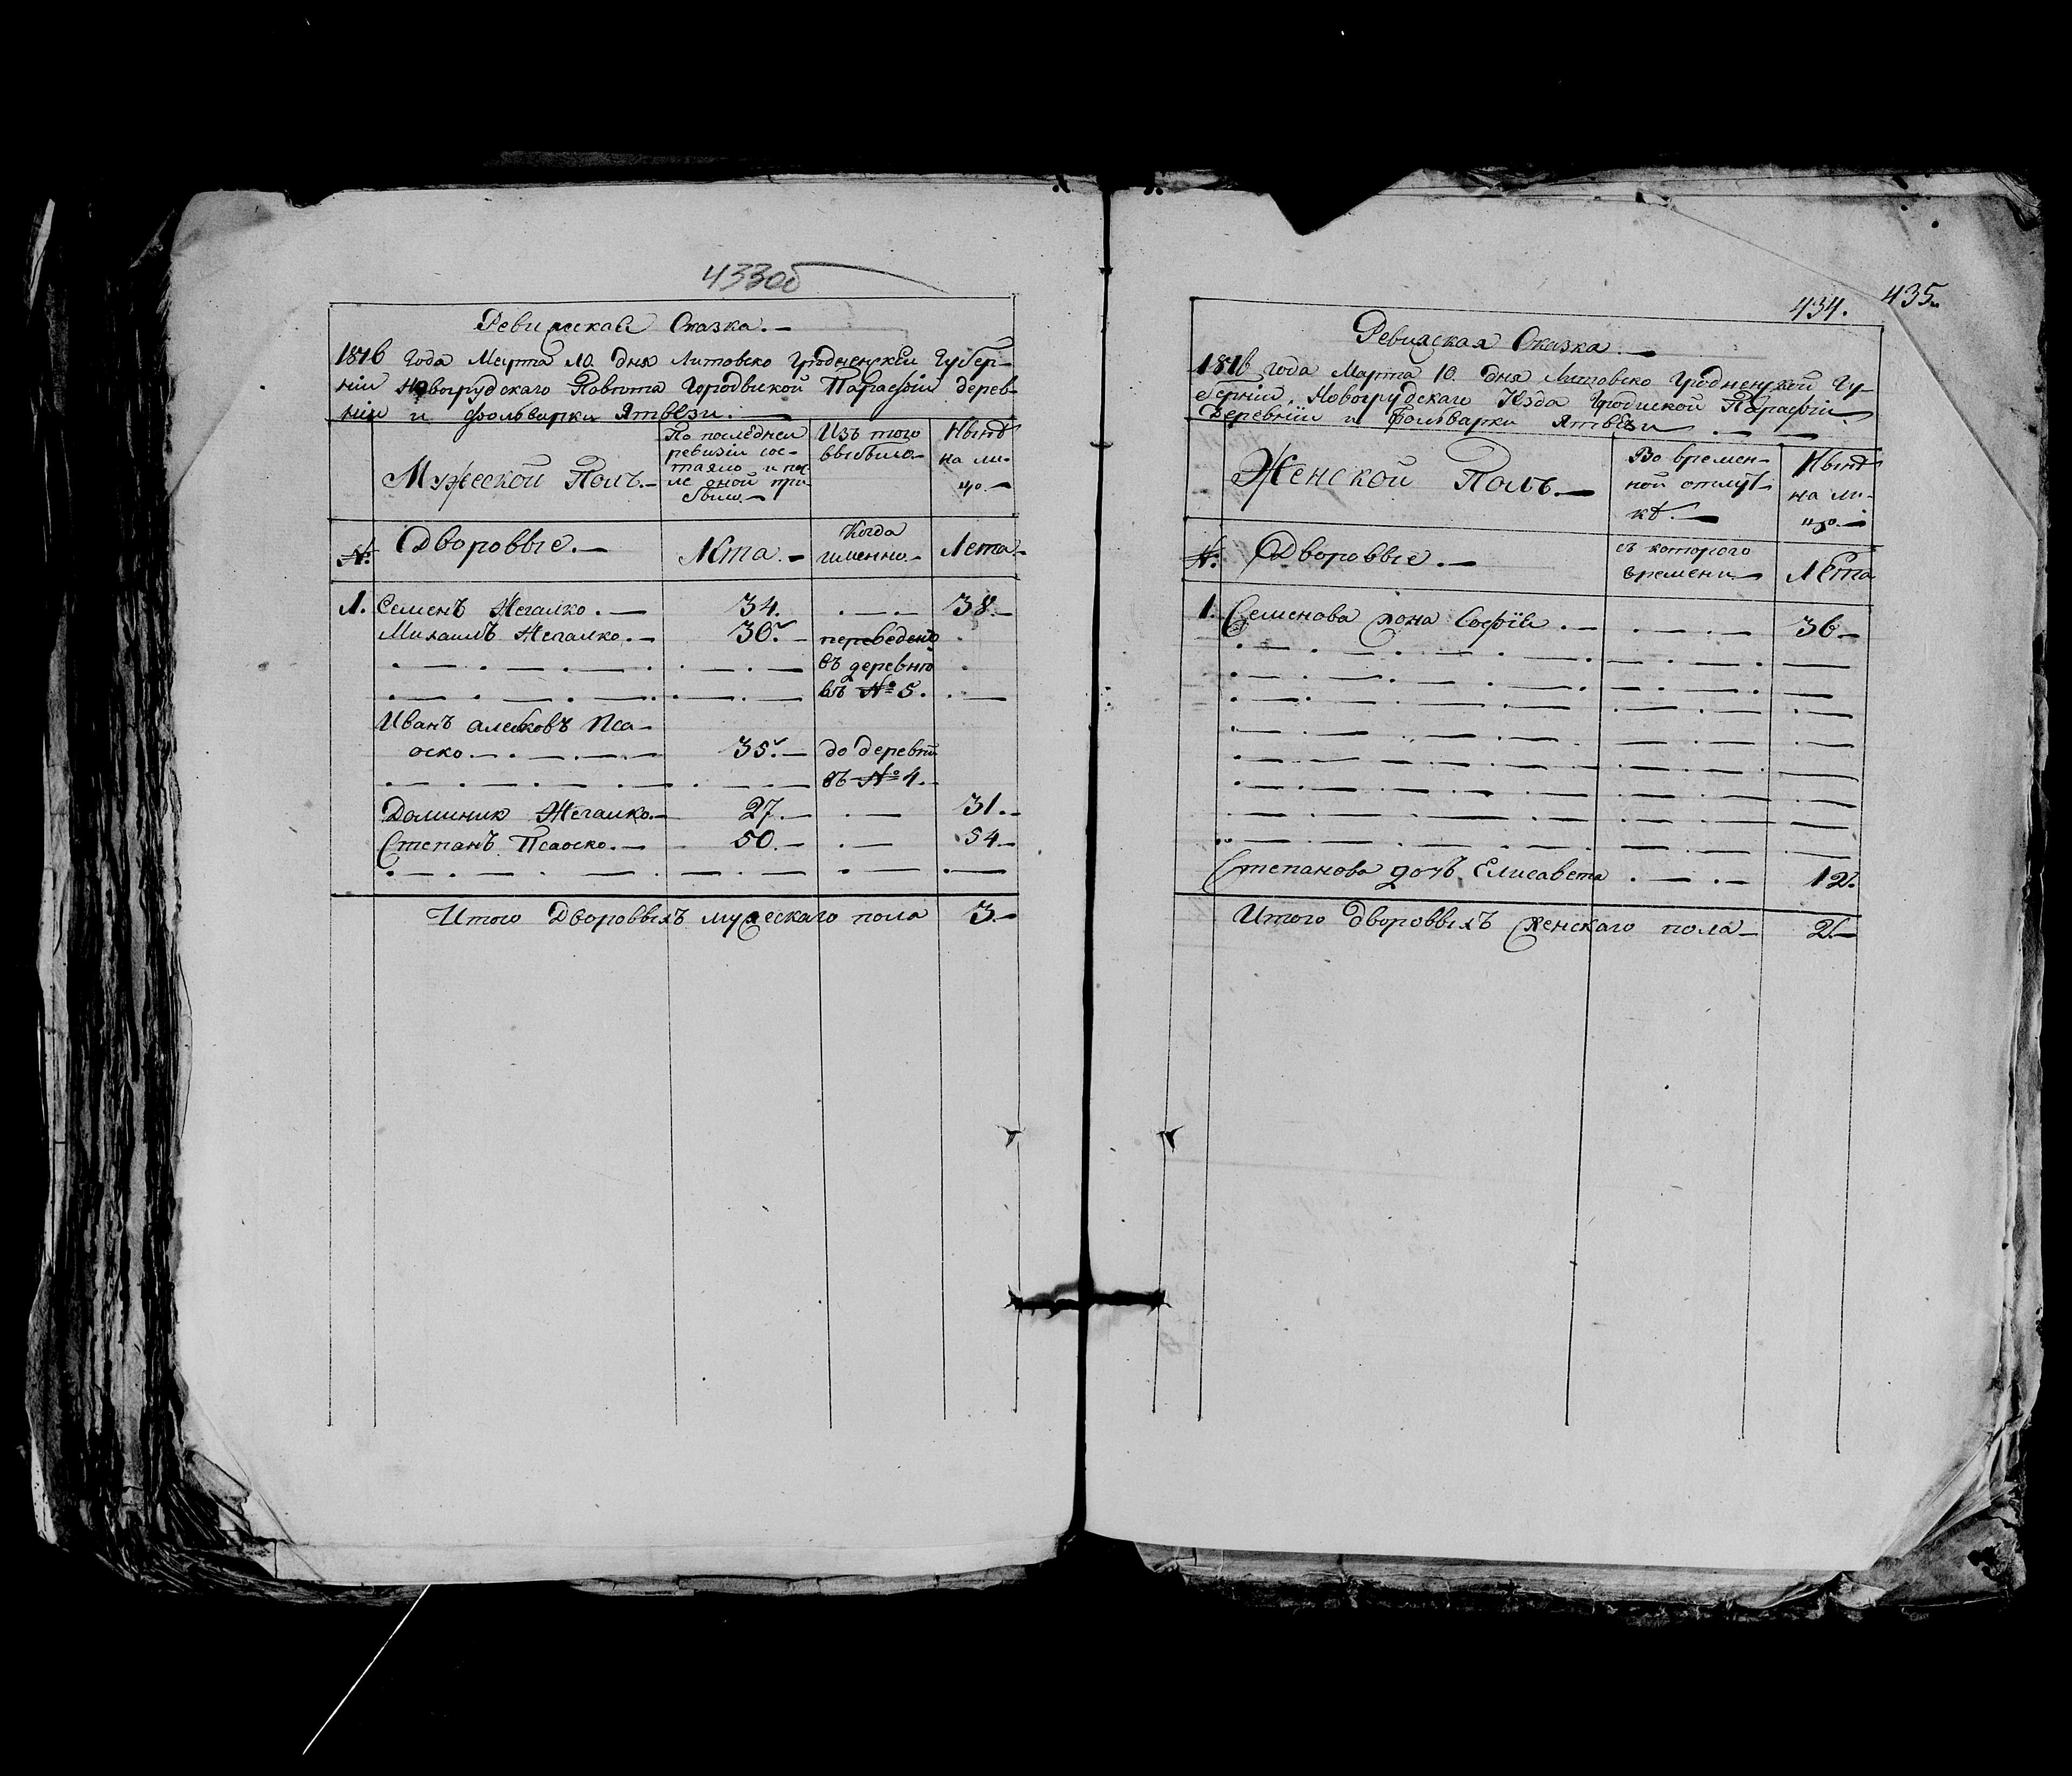 433об
Ревизская Сказка. —
1816 Года Марта 10. дня Литовско Гродненской Губер-
нии Новогрудского Повѣта Городиской Парафіи дерев-
ніи и фольварки Ятвези. —
Мужеской Полъ. —
По последней
ревизіи сос-
тояло и пос-
ле оной при
было. —
Изъ того
выбыло. —
Нынѣ
на ли-
цо. —
№. Дворовые. —
Лѣта. —
Когда
именно. —
Лета —
1. Семенъ Жегалко. — 34. . — . — 38. —
Михаилъ Жегалко. — 30. — переведенъ
въ деревню
въ № 5. . —
Иванъ Пса-
оско. — 35. — до деревни
въ № 4. —
Доминик Жегалко. — 27. — . — 31. —
Степанъ Псаоско. — 50. — . — 54. —
Итого Дворовыхъ мужескаго пола 3. —
434. 435.
Ревизская Сказка. —
1816 года Марта 10. дня Литовско Гродненской Гу-
берніи, Новогрудскаго Уѣзда Городиской Парафіи
Деревніи и Фольварки Ятвези. —
Женской Полъ. —
Во времен-
ной отлуч-
кѣ. —
Нынѣ
на ли-
цо. —
№. Дворовые. —
съ которого
времени —
Лѣта
1. Семенова жона Софія . — . — . — 36. —
Степанова дочь Елисавета . — . — 12.
Итого дворовыхъ женскаго пола — 2. —